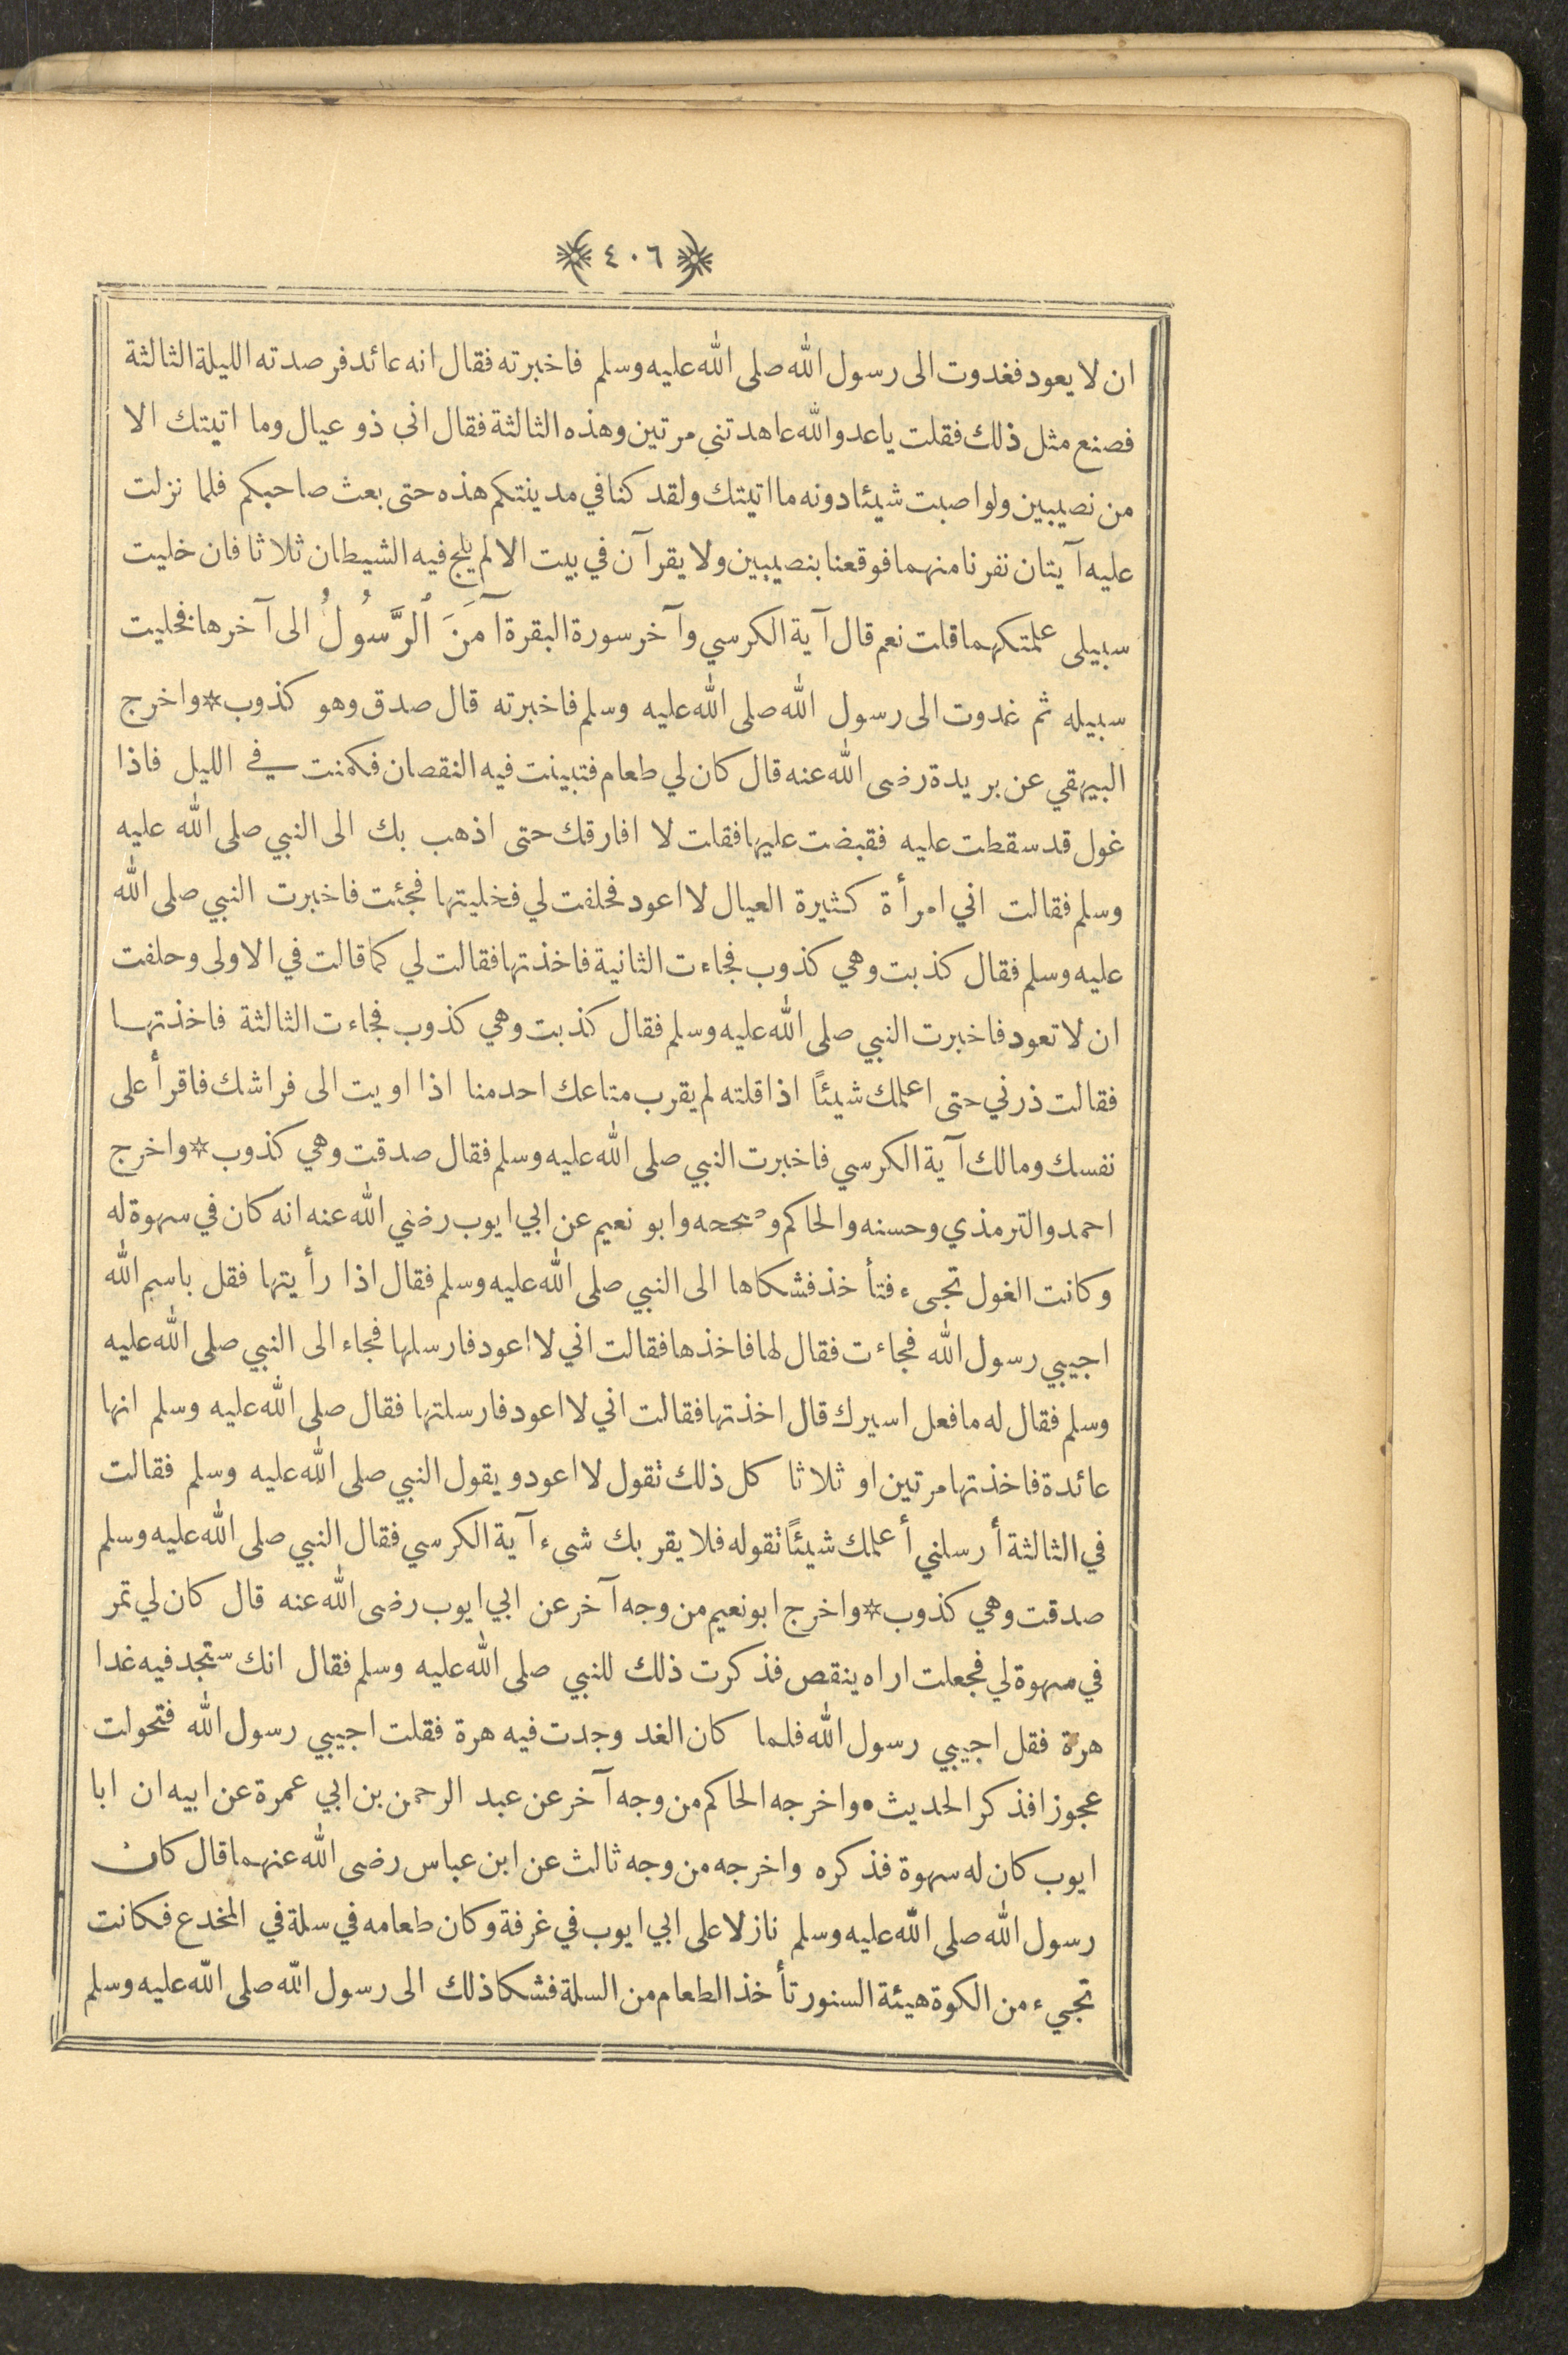 ﴿٤٠٦﴾
ان لا يعود فغدوت الى رسول الله صلى الله عليه وسلم فاخبرته فقال انه عائد فرصدته الليلة الثالثة
فصنع مثل ذلك فقلت يا عدو الله عاهدتني مرتين وهذه الثالثة فقال اني ذو عيال وما اتيتك الا
من نصيبين ولو اصبت شيئا دونه ما اتيتك ولقد كنا في مدينتكم هذه حتى بعث صاحبكم فلما نزلت
عليه آيتان نفرنا منهما فوقعنا بنصيبين ولا يقرآن في بيت الا لم يلج فيه الشيطان ثلاثا فان خليت
سبيلى علمتكهما قلت نعم قال آية الكرسي وآخر سورة البقرة آمَنَ ٱلرَّسُولُ الى آخرها فخليت
سبيله ثم غدوت الى رسول الله صلى الله عليه وسلم فاخبرته قال صدق وهو كذوب ☆ واخرج
البيهقي عن بريدة رضى الله عنه قال كان لي طعام فتبينت فيه النقصان فكمنت في الليل فاذا
غول قد سقطت عليه فقبضت عليها فقلت لا افارقك حتى اذهب بك الى النبي صلى الله عليه
وسلم فقالت اني امرأة كثيرة العيال لا اعود فحلفت لي فخليتها فجئت فاخبرت النبي صلى الله
عليه وسلم فقال كذبت وهي كذوب فجاءت الثانية فاخذتها فقالت لي كما قالت في الاولى وحلفت
ان لا تعود فاخبرت النبي صلى الله عليه وسلم فقال كذبت وهي كذوب فجاءت الثالثة فاخذتها
فقالت ذرني حتى اعلمك شيئاً اذا قلته لم يقرب متاعك احد منا اذا اويت الى فراشك فاقرأ على
نفسك ومالك آية الكرسي فاخبرت النبي صلى الله عليه وسلم فقال صدقت وهي كذوب ☆ واخرج
احمد والترمذي وحسنه والحاكم وصححه وابو نعيم عن ابي ايوب رضي الله عنه انه كان في سهوة له
وكانت الغول تجىء فتأخذ فشكاها الى النبي صلى الله عليه وسلم فقال اذا رأيتها فقل باسم الله
اجيبي رسول الله فجاءت فقال لها فاخذها فقالت اني لا اعود فارسلها فجاء الى النبي صلى الله عليه
وسلم فقال له ما فعل اسيرك قال اخذتها فقالت اني لا اعود فارسلتها فقال صلى الله عليه وسلم انها
عائدة فاخذتها مرتين او ثلاثا كل ذلك تقول لا اعود ويقول النبي صلى الله عليه وسلم فقالت
في الثالثة أرسلني أعلمك شيئاً تقوله فلا يقربك شىء آية الكرسي فقال النبي صلى الله عليه وسلم
صدقت وهي كذوب ☆ واخرج ابو نعيم من وجه آخر عن ابي ايوب رضى الله عنه قال كان لي تمر
في سهوة لي فجعلت اراه ينقص فذكرت ذلك للنبي صلى الله عليه وسلم فقال انك ستجد فيه غدا
هرة فقل اجيبي رسول الله فلما كان الغد وجدت فيه هرة فقلت اجيبي رسول الله فتحولت
عجوزا فذكر الحديث • واخرجه الحاكم من وجه آخر عن عبد الرحمن بن ابي عمرة عن ابيه ان ابا
ايوب كان له سهوة فذكره واخرجه من وجه ثالث عن ابن عباس رضى الله عنهما قال كان
رسول الله صلى الله عليه وسلم نازلا على ابي ايوب في غرفة وكان طعامه في سلة في المخدع فكانت
تجيء من الكوة هيئة السنور تأخذ الطعام من السلة فشكا ذلك الى رسول الله صلى الله عليه وسلم